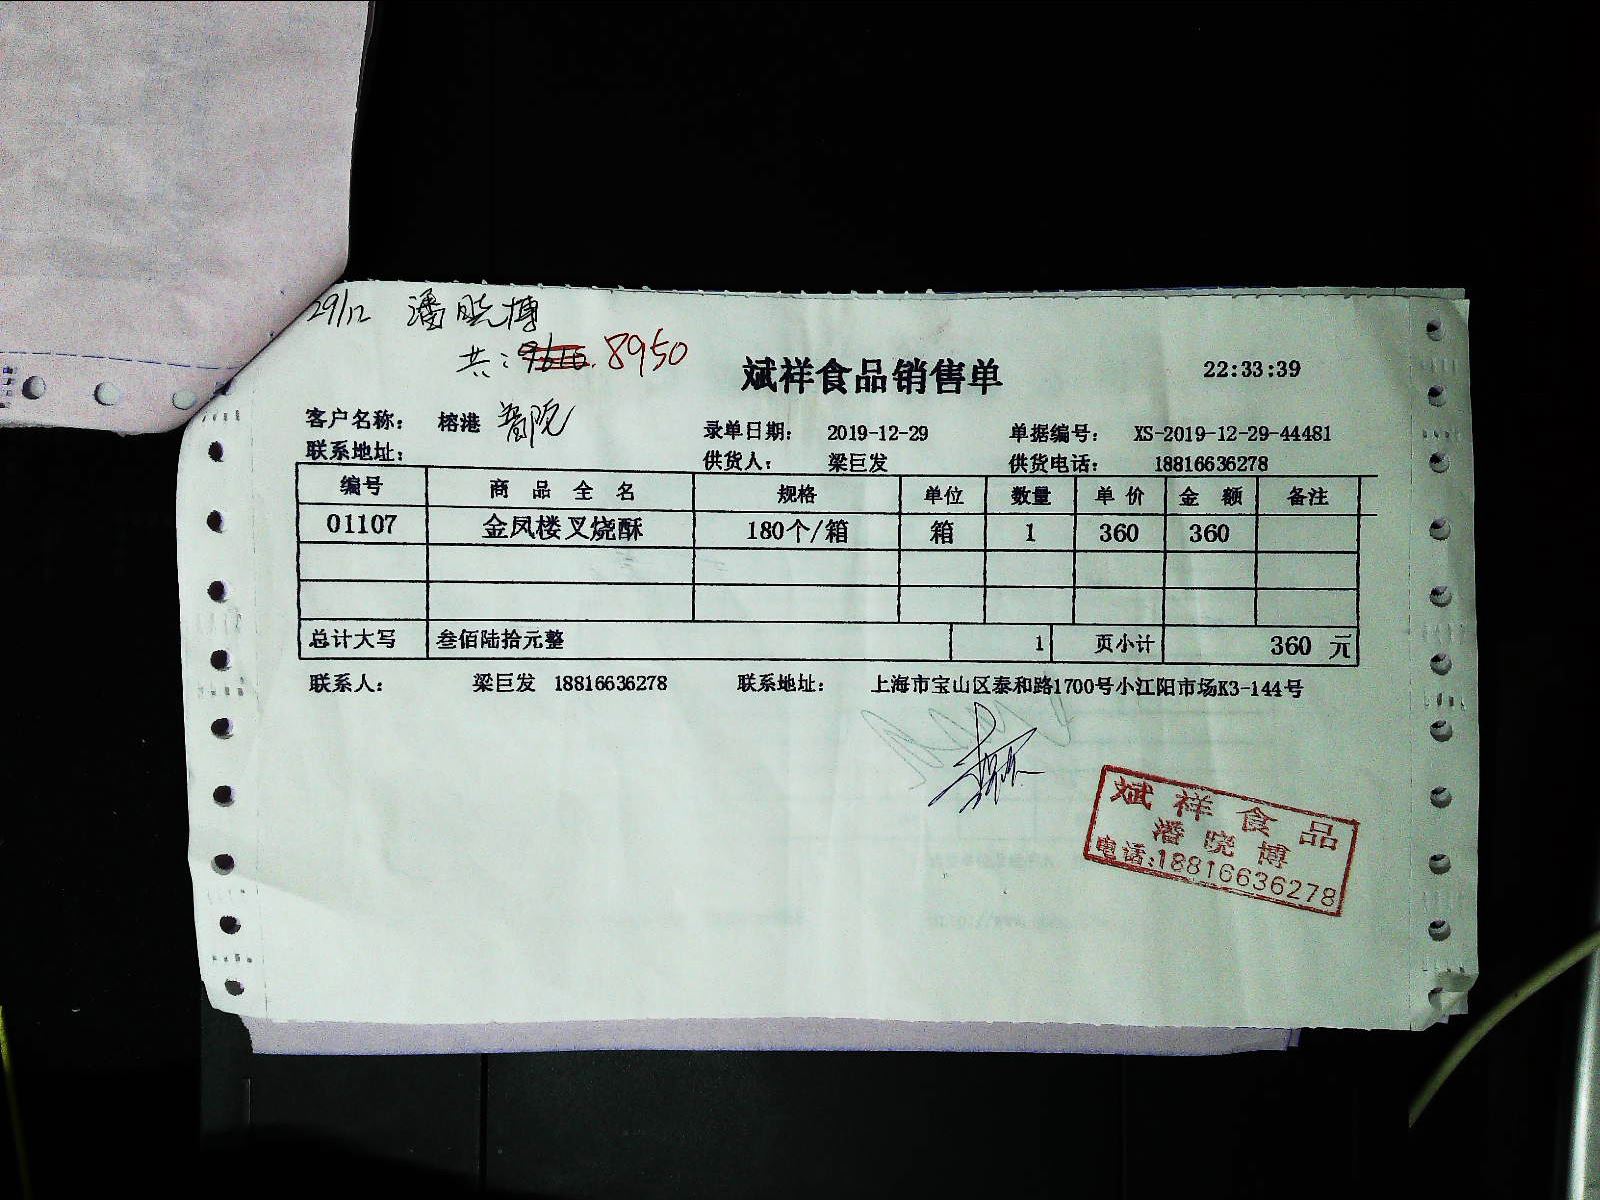 29/12 潘晓博
共: 8950
斌祥食品销售单 22:33:39
客户名称: 榕港
录单日期: 2019-12-29 单据编号: XS-2019-12-29-44481
联系地址:
供货人: 梁巨发 供货电话: 18816636278
编号 商品全名 规格 单位 数量 单价 金额 备注
01107 金凤楼叉烧酥 180个/箱 箱 1 360 360
总计大写 叁佰陆拾元整 1 页小计 360 元
联系人: 梁巨发 18816636278 联系地址: 上海市宝山区泰和路1700号小江阳市场K3-144号
斌祥食品
潘晓博
电话:18816636278